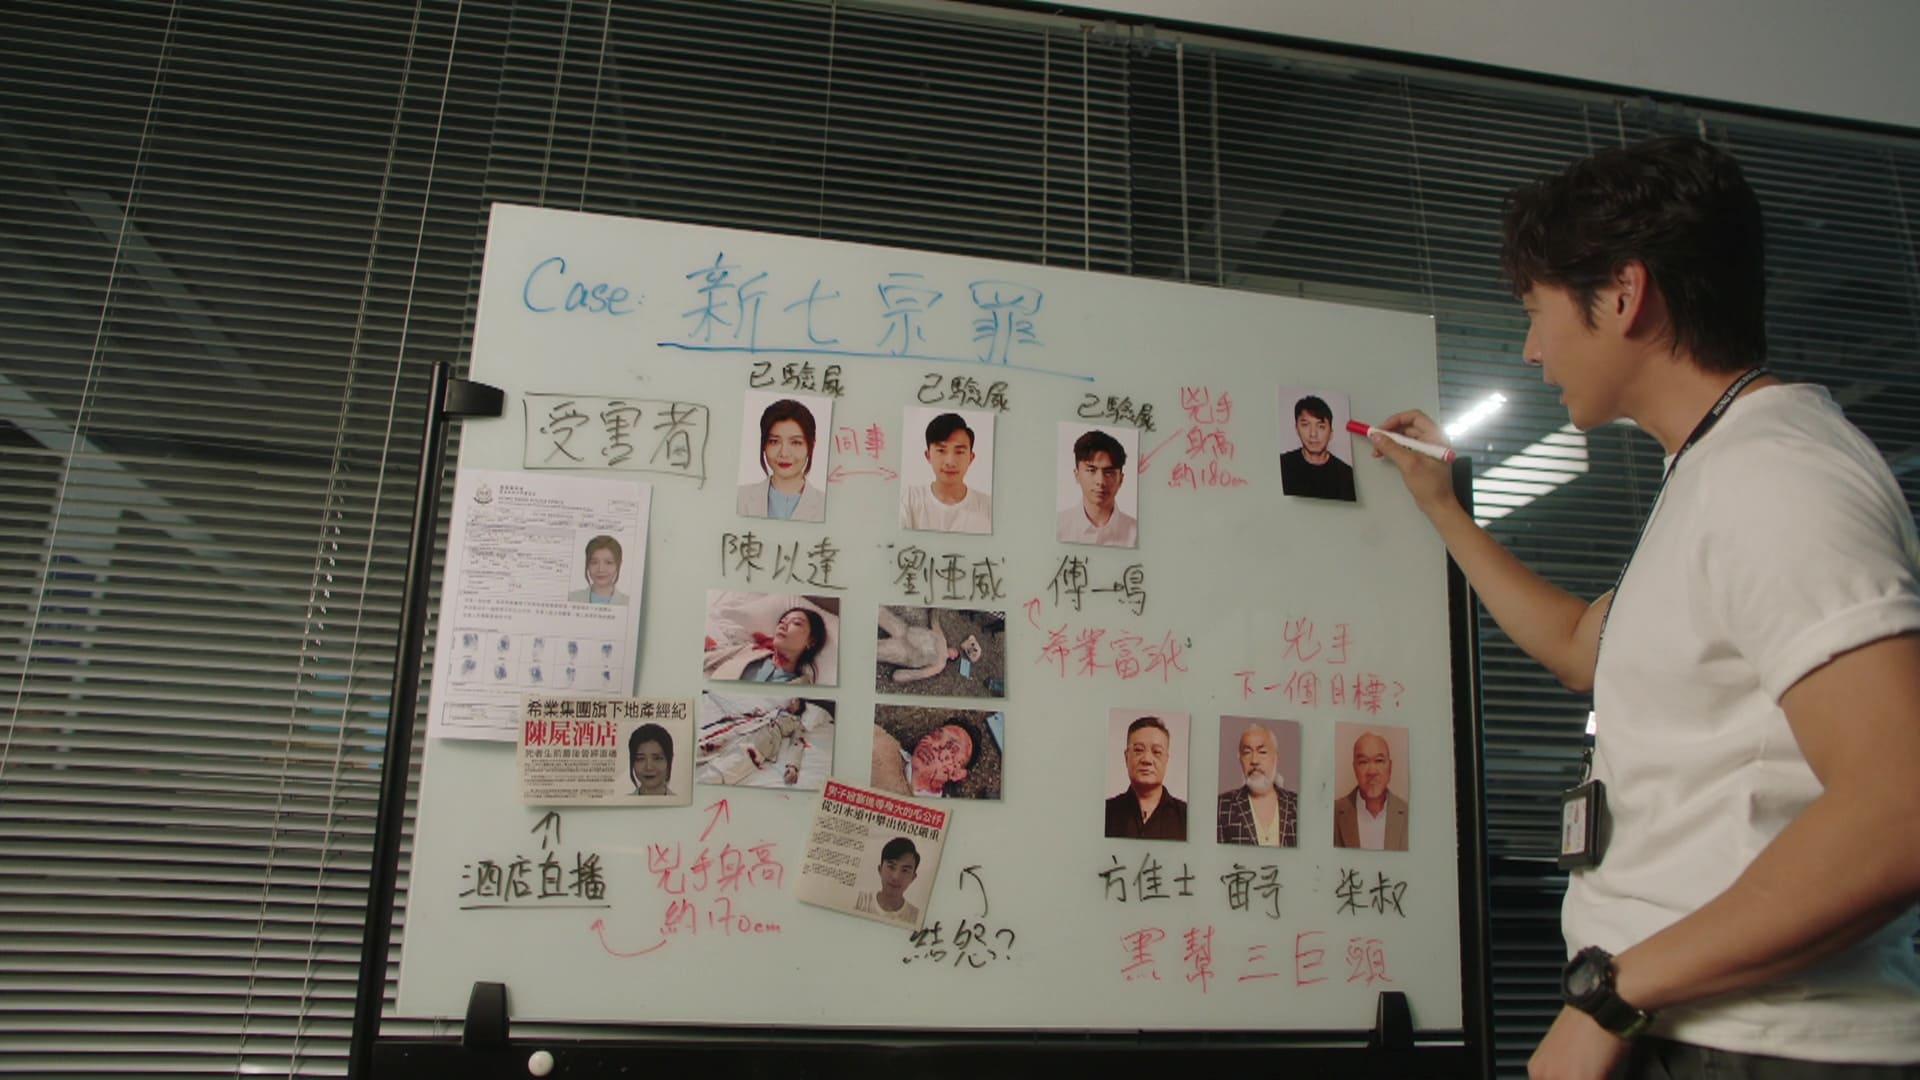 Case: 新七宗罪
受害者
已驗屍
已驗屍
已驗屍
同事
兇手
身高
約180cm
陳以達
劉亞威
傅一鳴
希業富三代
兇手
下一個目標?
HONG KONG POLICE FORCE
希業集團旗下地產經紀
陳屍酒店
死者生前最後曾經直播
酒店直播
兇手身高
約170cm
從引水道中攀出情況嚴重
結怨?
方佳士
雷哥
柒叔
黑幫三巨頭